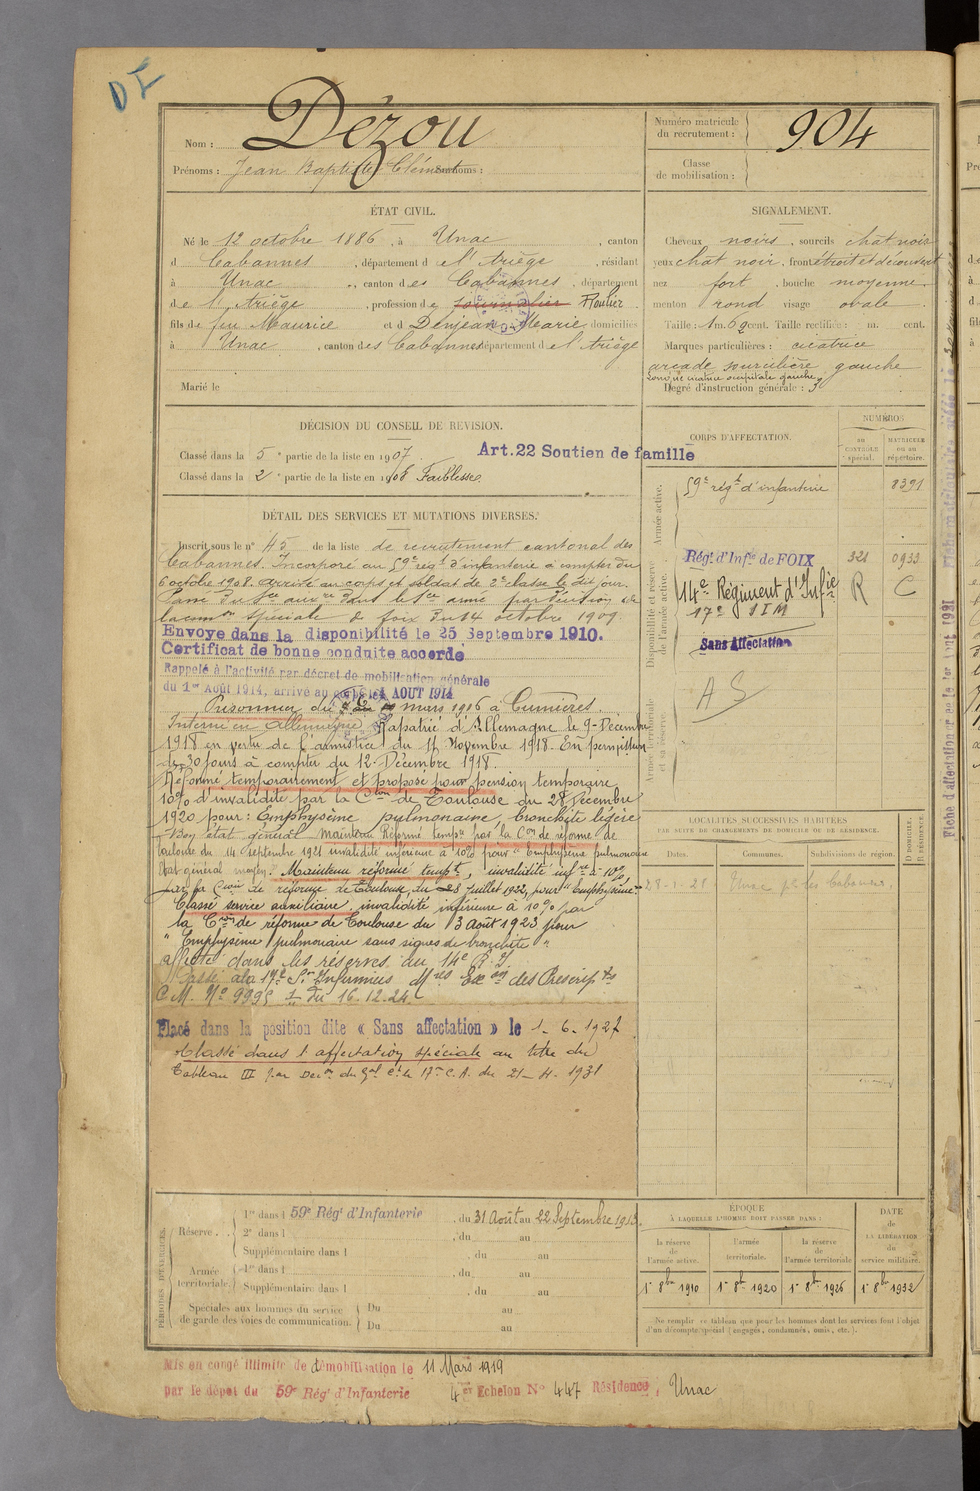 DI
Nom : Dézou
Prénoms : Jean Baptiste Clément Surnoms :
Numéro matricule du recrutement : 904
Classe de mobilisation :
ÉTAT CIVIL.
Né le 12 octobre 1886, à Unac, canton
d Cabannes, département de l'Ariège, résidant
à Unac, canton des Cabannes, département
de l'Ariège, profession de journalier Roulier.
fils de feu Maurice et d Denjean Marie, domiciliés
à Unac, canton des Cabannes département de l'Ariège
Marié le
SIGNALEMENT.
Cheveux noirs, sourcils chat noir
yeux chat noir, front étroit et découvert
nez fort, bouche moyenne
menton rond visage ovale
Taille : 1 m. 62 cent. Taille rectifiée : m. cent.
Marques particulières : cicatrice
arcade sourcilière gauche
occipitale gauche
Degré d'instruction générale : 3
DÉCISION DU CONSEIL DE REVISION.
Classé dans la 5e partie de la liste en 1907.
Art. 22 Soutien de famille
Classé dans la 2e partie de la liste en 1908 Faiblesse.
CORPS D'AFFECTATION.
NUMÉROS
au CONTRÔLE spécial.
MATRICULE ou au répertoire.
Armée active.
59e régt d'infanterie 8391
Disponibilité et réserve de l'armée active.
Régt d'Infie de FOIX 321 0933
14e Régiment d'Infie R C
17e SIM
Sans Affectation
AS
Armée territoriale et sa réserve.
DÉTAIL DES SERVICES ET MUTATIONS DIVERSES.
Inscrit sous le n° 45 de la liste de recrutement cantonal des
Cabannes. Incorporé au 59e régt d'infanterie à compter du
6 octobre 1908. arrivé au corps et soldat de 2e classe le dit jour.
Passé du Sce aux re dans le Sce armé par décision de
la comon spéciale de foix du 14 octobre 1909
Envoyé dans la disponibilité le 25 Septembre 1910.
Certificat de bonne conduite accordé
Rappelé à l'activité par décret de mobilisation générale
du 1er Août 1914, arrivé au corps le 4 AOUT 1914
Prisonnier du mars 1916 à Cumières.
Interné en Allemagne. Rapatrié d'Allemagne le 9 Décembre
1918 en vertu de l'armistice du 11 Novembre 1918. En permission
de 30 jours à compter du 12 Décembre 1918.
Réformé temporairement et proposé pour pension temporaire
10% d'invalidité par la Cion de Toulouse du 28 Décembre
1920 pour : Emphysème pulmonaire, bronchite légère
Bon état général Maintenu Réformé tempre par la Con de réforme de
Toulouse du 14 septembre 1921 invalidité inférieure à 10% pour "Emphysème pulmonaire
Etat général moyen. Maintenu réformé tempt, invalidité infre à 10%
par la Cion de réforme de Toulouse du 28 Juillet 1922, pour "Emphysème"
Classé service auxiliaire, invalidité inférieure à 10% par
la Cion de réforme de Toulouse du 3 Août 1923 pour
"Emphysème pulmonaire sans signes de bronchite"
affecté dans les réserves au 14e R.I.
Passé à la 17e Son Infirmiers Mres Exon des Prescriptns
C.M. No 9995 1/ du 16.12.24
Placé dans la position dite « Sans affectation » le 1-6-1927
Classé dans l'affectation spéciale au titre du
Tableau III par Deon du Gal Ct le 17e C.A. du 21-4-1931
LOCALITÉS SUCCESSIVES HABITÉES
PAR SUITE DE CHANGEMENTS DE DOMICILE OU DE RÉSIDENCE.
Dates. Communes. Subdivisions de région. D DOMICILE. R RÉSIDENCE.
28-1-28 Unac p les Cabannes.
PÉRIODES D'EXERCICES.
Réserve. . 1re dans l 59e Régt d'Infanterie, du 31 Août au 22 Septembre 1913.
2e dans l , du au
Supplémentaire dans l , du au
Armée territoriale. 1re dans l , du au
Supplémentaire dans l , du au
Spéciales aux hommes du service de garde des voies de communication. Du au
Du au
ÉPOQUE
À LAQUELLE L'HOMME DOIT PASSER DANS :
la réserve de l'armée active.
l'armée territoriale.
la réserve de l'armée territoriale
DATE de LA LIBÉRATION du service militaire.
1r 8bre 1910 1r 8bre 1920 1r 8bre 1926 1r 8bre 1932
Ne remplir ce tableau que pour les hommes dont les services font l'objet
d'un décompte spécial (engagés, condamnés, omis, etc.).
Mis en congé illimité de démobilisation le 11 Mars 1919
par le dépôt du 59e Régt d'Infanterie 4er Echelon No 447 Résidence, Unac